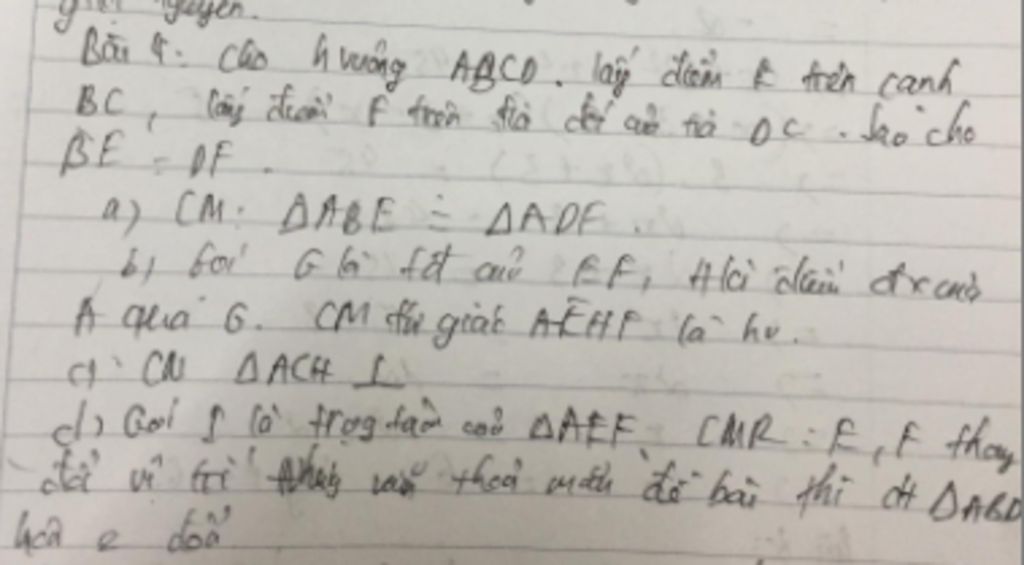 nguyên.
Bài 4: Cho h vuông ABCD. lấy điểm E trên cạnh
BC, lấy điểm F trên tia đối của tia DC. Sao cho
BE = DF.
a) CM: ΔABE = ΔADF.
b) Gọi G là tđ của EF, H là điểm đx của
A qua G. CM tứ giác AEHF là hv.
c) CM ΔACH ⊥
d) Gọi I là trọg tâm của ΔAEF. CMR: E, F thay
đổi vị trí vẫn thoả mãn đề bài thì ΔABD